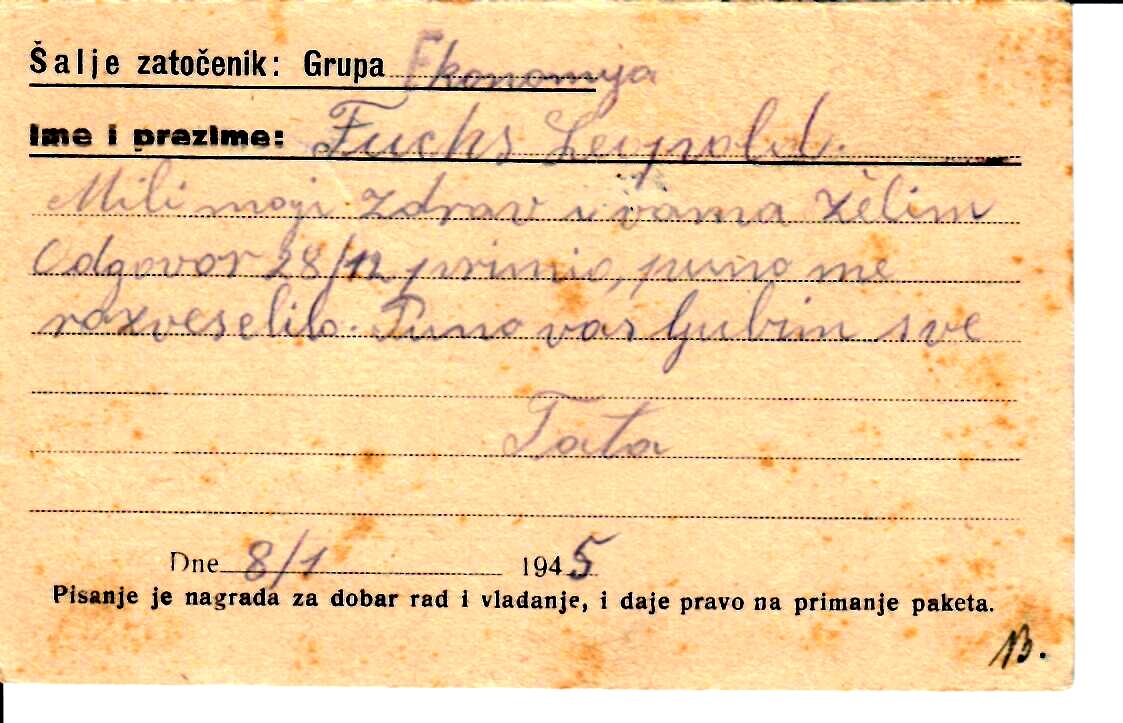 Šalje zatočenik: Grupa Ekonomija
Ime i prezime: Fuchs Leopold.
Mili moji zdrav i vama želim
Odgovor 28/12 primio, puno me
razveselilo. Puno vas ljubim sve
Tata
Dne 8/1 1945
Pisanje je nagrada za dobar rad i vladanje, i daje pravo na primanje paketa.
B.